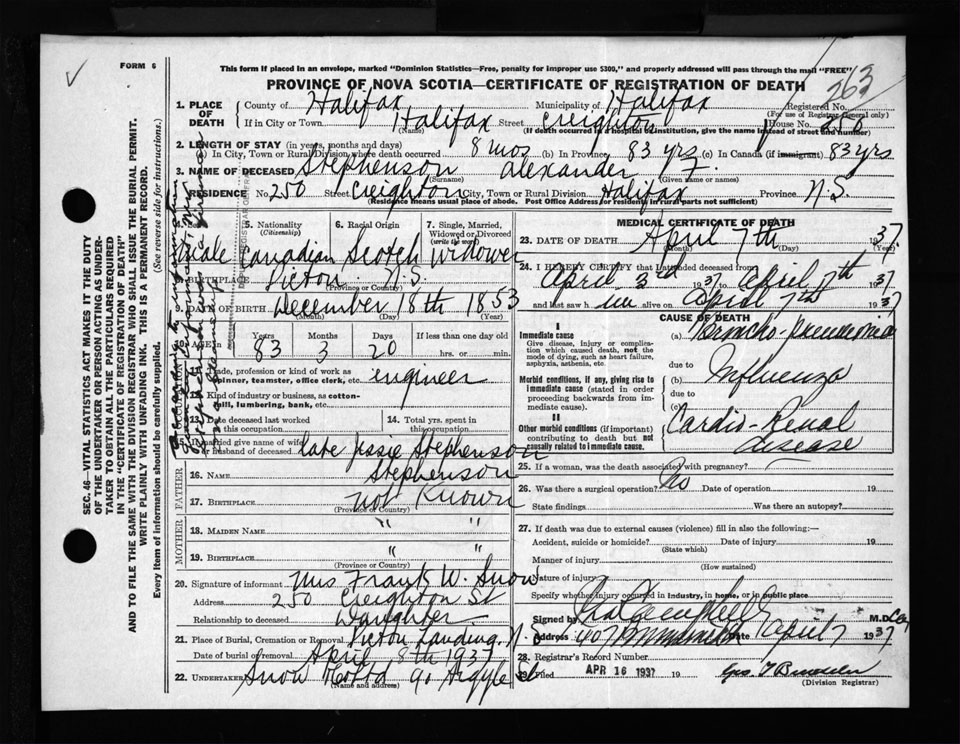 FORM 6
This form if placed in an envelope, marked "Dominion Statistics—Free, penalty for improper use $300," and properly addressed will pass through the mail "FREE"
PROVINCE OF NOVA SCOTIA—CERTIFICATE OF REGISTRATION OF DEATH
263
1. PLACE OF DEATH
County of Halifax Municipality of Halifax Registered No.
(For use of Registrar General only)
If in City or Town Halifax Street Creighton House No. 250
(Name) (If death occurred in a hospital or institution, give the name instead of street and number)
2. LENGTH OF STAY (in years, months and days)
In City, Town or Rural Division where death occurred 8 mos (b) In Province 83 yrs (c) In Canada (if immigrant) 83 yrs
3. NAME OF DECEASED Stephenson Alexander F.
(Surname) (Given name or names)
RESIDENCE No. 250 Street Creighton City, Town or Rural Division Halifax Province N.S.
(Residence means usual place of abode. Post Office Address for residents in rural parts not sufficient)
5. Nationality (Citizenship) 6. Racial Origin 7. Single, Married, Widowed or Divorced (write the word)
Male Canadian Scotch Widower
BIRTHPLACE Pictou N.S.
(Province or Country)
9. DATE OF BIRTH December 18th 1853
(Month) (Day) (Year)
AGE in Years Months Days If less than one day old
83 3 20 hrs. or min.
Trade, profession or kind of work as spinner, teamster, office clerk, etc. engineer
Kind of industry or business, as cotton-mill, lumbering, bank, etc.
Date deceased last worked at this occupation 14. Total yrs. spent in this occupation
If married give name of wife or husband of deceased late Jessie Stephenson
FATHER
16. NAME Stephenson
17. BIRTHPLACE not Known
(Province or Country)
MOTHER
18. MAIDEN NAME " "
19. BIRTHPLACE " "
(Province or Country)
20. Signature of informant Mrs Frank W. Snow
Address 250 Creighton St
Relationship to deceased Daughter
21. Place of Burial, Cremation or Removal Pictou Landing, N.S.
Date of burial or removal April 8th 1937
22. UNDERTAKER Snow 90 Argyle St
(Name and address)
MEDICAL CERTIFICATE OF DEATH
23. DATE OF DEATH April 7th 37.
(Month) (Day) (Year)
24. I HEREBY CERTIFY that I attended deceased from
April 3rd 1937 to April 7th 1937
and last saw h im alive on April 7th 1937
CAUSE OF DEATH
I
Immediate cause
Give disease, injury or complication which caused death, not the mode of dying, such as heart failure, asphyxia, asthenia, etc.
(a) Broncho-Pneumonia
due to
Morbid conditions, if any, giving rise to immediate cause (stated in order proceeding backwards from immediate cause).
(b) Influenza
due to
(c)
II
Other morbid conditions (if important) contributing to death but not causally related to immediate cause.
Cardio-Renal disease
25. If a woman, was the death associated with pregnancy?
26. Was there a surgical operation? No Date of operation 19
State findings Was there an autopsy?
27. If death was due to external causes (violence) fill in also the following:—
Accident, suicide or homicide? Date of injury 19
(State which)
Manner of injury
(How sustained)
Nature of injury
Specify whether injury occurred in industry, in home, or in public place
Signed by Campbell M.D.
Address 407 Date April 7 1937
28. Registrar's Record Number
Filed APR 16 1937 19
(Division Registrar)
SEC. 46—VITAL STATISTICS ACT MAKES IT THE DUTY
OF THE UNDERTAKER OR PERSON ACTING AS UNDERTAKER TO OBTAIN ALL THE PARTICULARS REQUIRED
IN THE "CERTIFICATE OF REGISTRATION OF DEATH"
AND TO FILE THE SAME WITH THE DIVISION REGISTRAR WHO SHALL ISSUE THE BURIAL PERMIT.
WRITE PLAINLY WITH UNFADING INK. THIS IS A PERMANENT RECORD.
Every item of information should be carefully supplied. (See reverse side for instructions.)